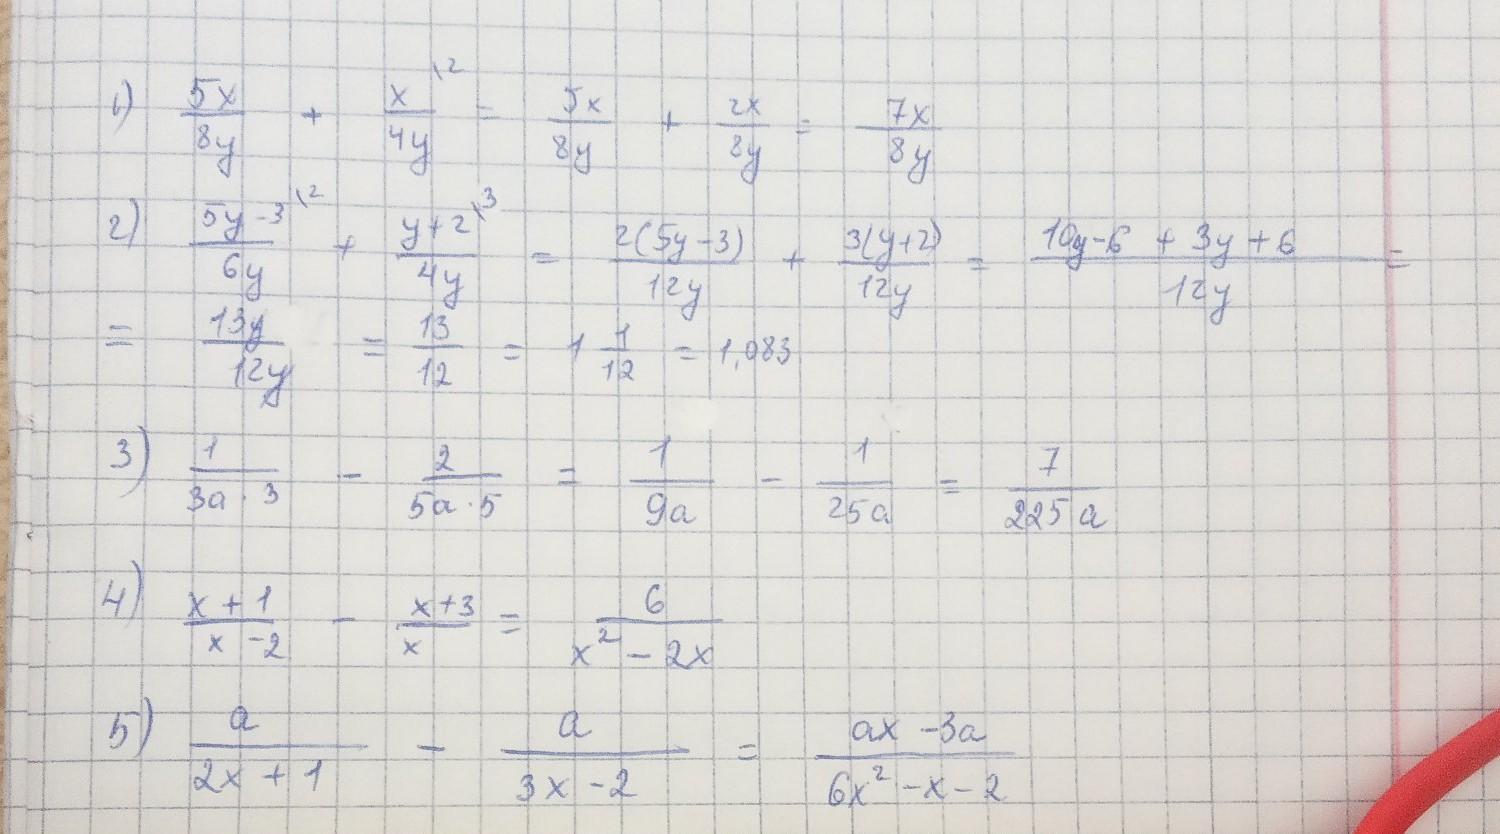 1) 5x/8y + x/4y \2 = 5x/8y + 2x/8y = 7x/8y
2) 5y-3/6y \2 + y+2/4y \3 = 2(5y-3)/12y + 3(y+2)/12y = 10y-6 + 3y+6/12y =
= 13y/12y = 13/12 = 1 1/12 = 1,083
3) 1/3a·3 - 2/5a·5 = 1/9a - 1/25a = 7/225a
4) x+1/x-2 - x+3/x = 6/x²-2x
5) a/2x+1 - a/3x-2 = ax-3a/6x²-x-2